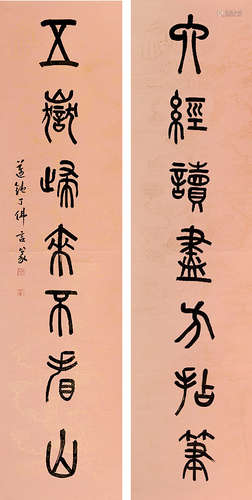 六經讀盡方拈筆
五嶽歸來不看山
蘧鈍丁佛言篆